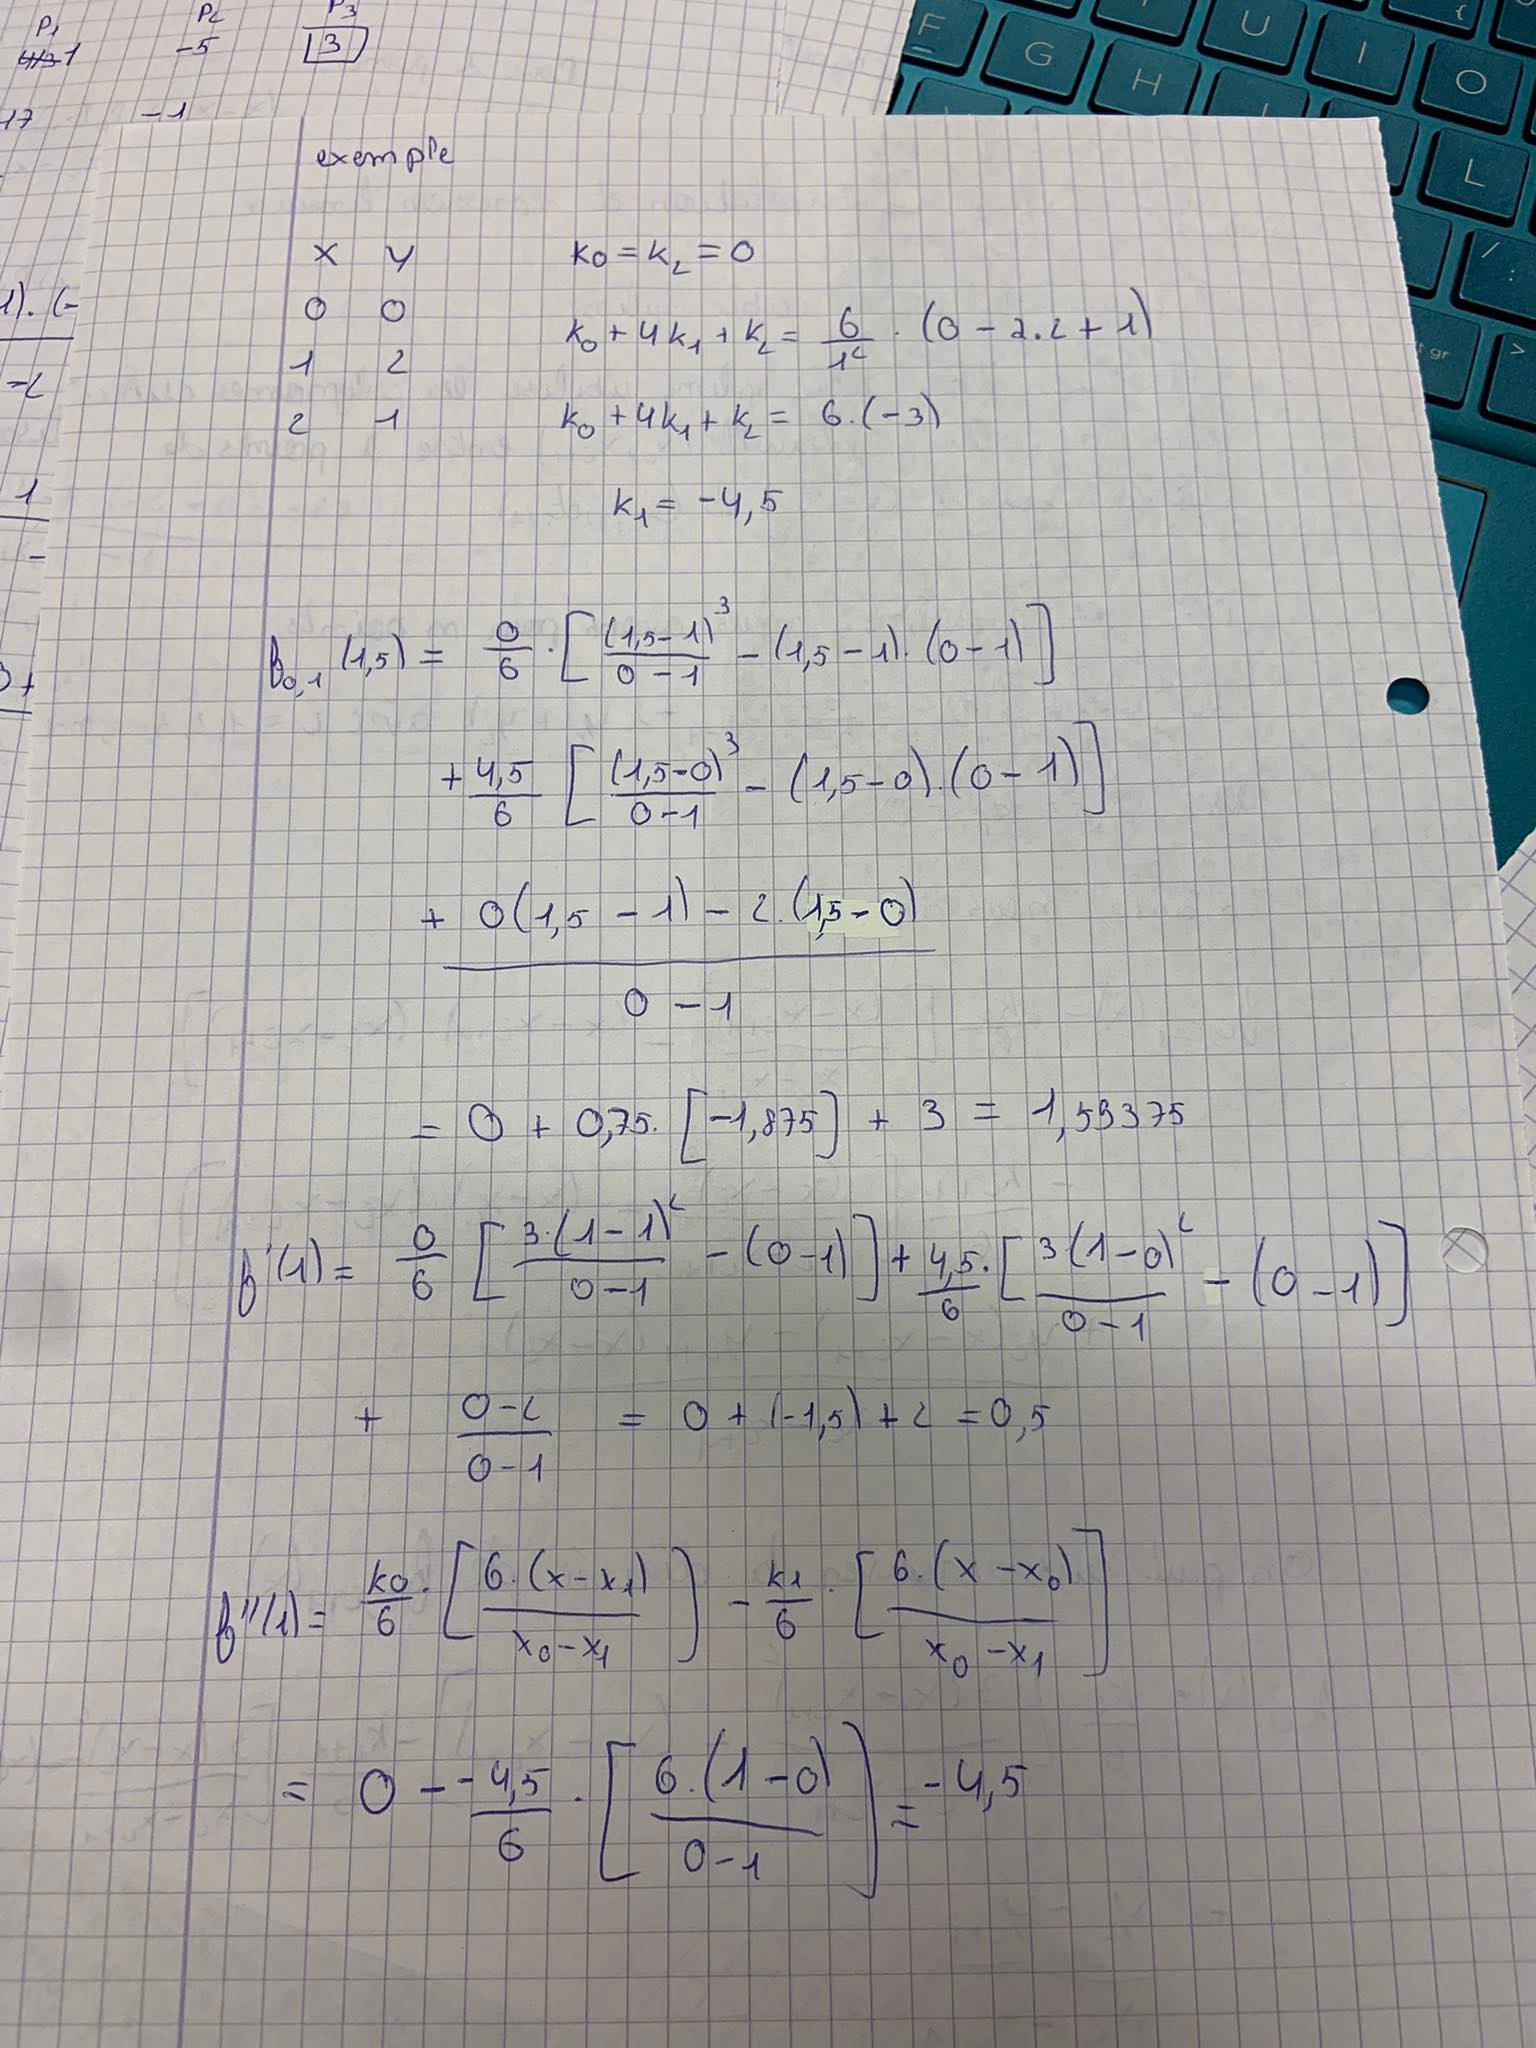 P1 P2 P3
1 -5 3
17 -1
1). (-
-2
1
-
exemple
x y k0 = k2 = 0
0 0 k0 + 4k1 + k2 = 6/1² · (0 - 2.2 + 1)
1 2
2 1 k0 + 4k1 + k2 = 6.(-3)
k1 = -4,5
f0,1 (1,5) = 0/6 · [(1,5-1)³/(0-1) - (1,5-1).(0-1)]
+ 4,5/6 [(1,5-0)³/(0-1) - (1,5-0).(0-1)]
+ 0(1,5-1) - 2.(1,5-0)
0-1
= 0 + 0,75. [-1,875] + 3 = 1,59375
f'(1) = 0/6 [3.(1-1)²/(0-1) - (0-1)] + 4,5./6 [3(1-0)²/(0-1) - (0-1)]
+ 0-2/0-1 = 0 + (-1,5) + 2 = 0,5
f''(1) = k0/6 · [6.(x-x1)/(x0-x1)] - k1/6 · [6.(x-x0)/(x0-x1)]
= 0 - -4,5/6 · [6.(1-0)/(0-1)] = -4,5
F G H U I O L { / : ; > t gr